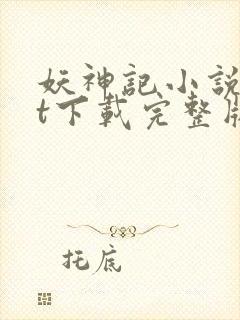 妖神記小說
t下載完整版
托底